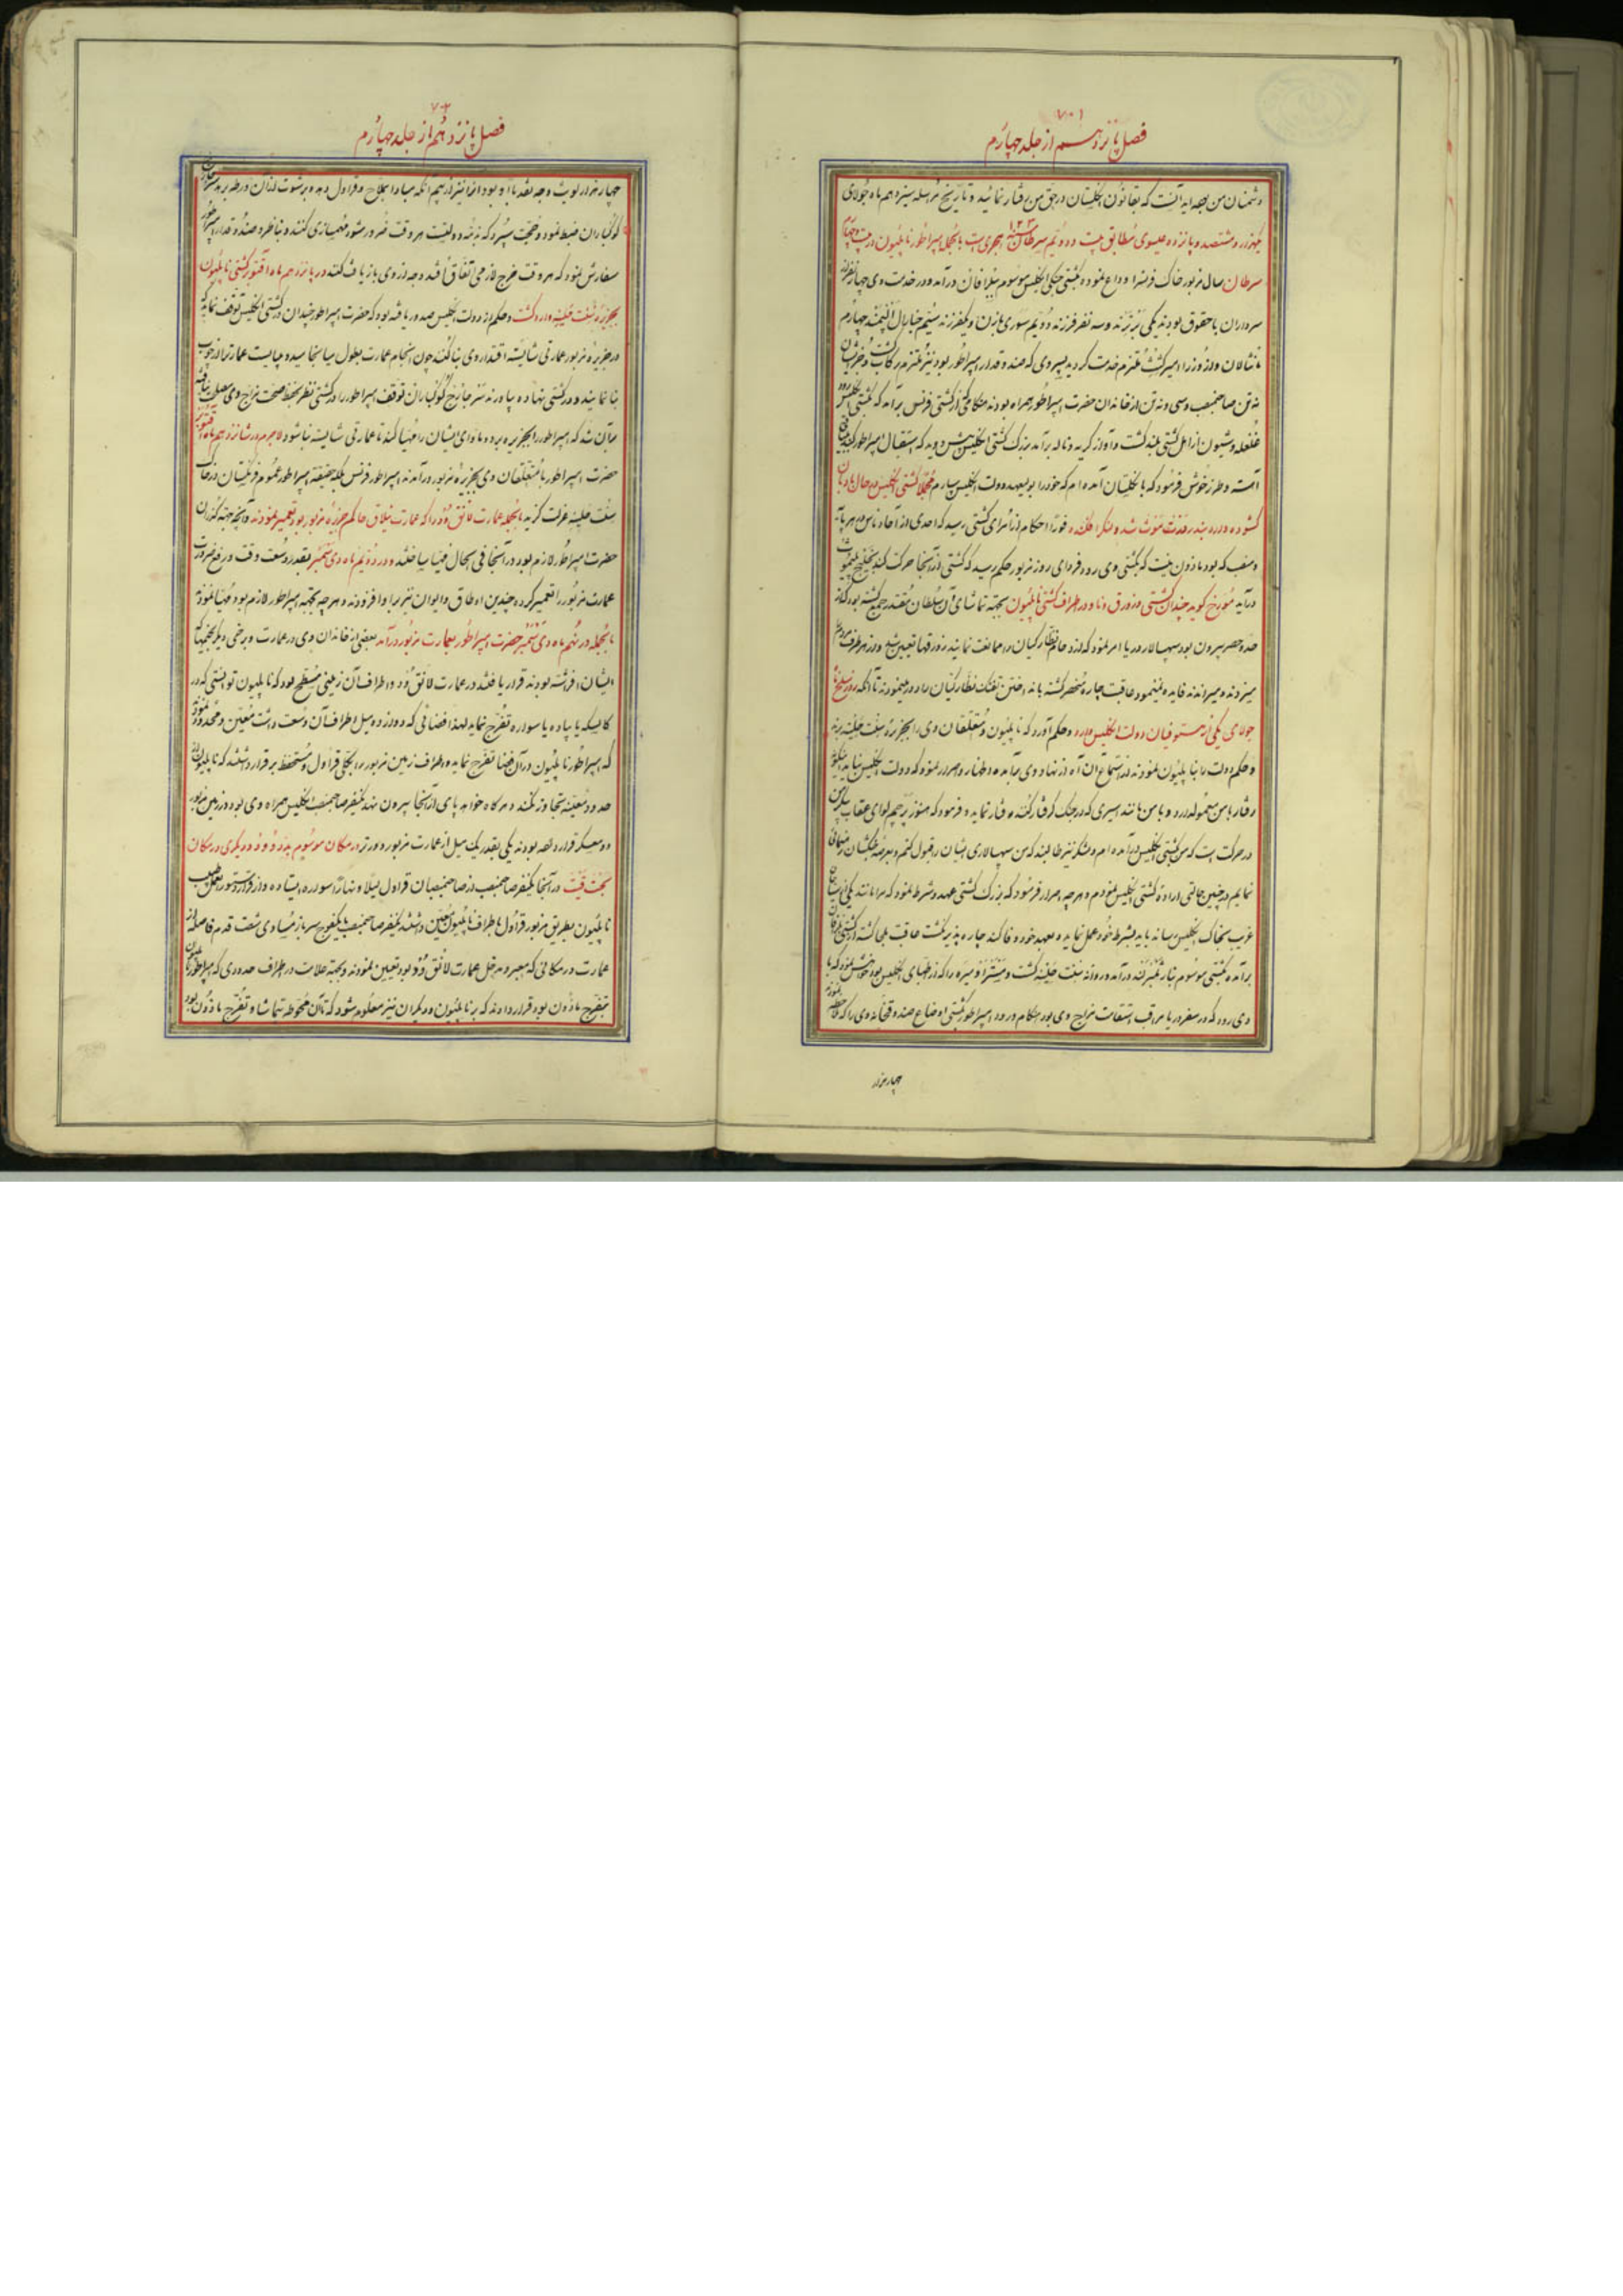 ۷۰۱
فصل پانزدهم از جلد چهارم
دشمنان من بوده اید آنست که بقانون انگلستان در حق من رفتار نمائید و تاریخ مراسله سیزدهم ماه جولای
یکهزار و هشتصد و پانزده عیسوی مطابق بیست و دویم سرطان هجری است بالجمله امپراطور ناپلیون در بیست و چهارم
سرطان سال مزبور خاک فرنس را وداع نموده بکشتی جنگی انگلیس موسوم در آمد و در خدمت وی چهار نفر از
سرداران با حقوق بودند یکی برترند و سه نفر فرزند دویم سوری با زن و یکنفر فرزند سیم جنرال چهارم
ملتزم خدمت گردید پسر وی که صندوقدار امپراطور بود نیز ملتزم رکاب گشت
نه تن صاحبمنصب و سی و نه تن از خاندان حضرت امپراطور همراه بودند هنگامی که از کشتی فرنس برآمد که بکشتی انگلیس رود
غلغله و شیون از اهل کشتی بلند گشت و آواز گریه و ناله برآمد بزرگ کشتی انگلیس پیش دوید که استقبال امپراطور کند
آهسته و طرز خوش فرمود که بانگلستان آمده ام که خود را بر عهد دولت انگلیس سپارم کشتی انگلیس در حال بادبان
گشوده وارد بندر شد و لنگر افکند فورا احکام از امرای کشتی رسید که احدی از آحاد ناس در هر پایه
و منصب که بود ماذون نیست که بکشتی وی رود و فردای روز مزبور حکم رسید که کشتی از آنجا حرکت کند بخلیج
درآید مورخ گوید چندان کشتی و زورق و ناو در اطراف کشتی ناپلیون بجهة تماشای آن سلطان مقتدر جمع گشته بود که از
حد و حصر بیرون بود سپهسالار دریا امر نمود که ازدحام نظارگیان را ممانعت نمایند زورقها تعیین شد و از هر طرف
میزدند و میراندند فایده نمینمود عاقبت چاره منحصر گشته بانداختن تفنگ نظارگیان را دور مینمودند تا آنکه روز سلخ ماه
جولای یکی از مستوفیان دولت انگلیس وارد و حکم آورد که ناپلیون و متعلقان وی را بجزیره سنت هلینه برند
و حکم دولت را بناپلیون نمودند از استماع آن آه از نهاد وی برآمده اظهار و اصرار نمود که دولت انگلیس نباید اینگونه
رفتار با من معمول دارد و با من مانند اسیری که در جنگ گرفتار کنند رفتار نماید و فرمود که هنوز پرچم لوای عقاب پیکر من
در حرکت است که من بکشتی انگلیس درآمده ام و لشکر نیز طالبند که من سپهسالاری ایشان را قبول کنم و بعرصه جنگ ایشان راهنمائی
نمایم در چنین حالتی اراده کشتی انگلیس نمودم و هر چه اصرار فرمود که بزرگ کشتی عهد و شرط نمود که مرا مانند یکی از سیاح
غریب بخاک انگلیس رساند باید بشرط خود عمل نماید و بعهد خود وفا کند چاره پذیر نگشت عاقبت ملجا گشته از کشتی
برآمده بکشتی موسوم درآمد و روانه سنت هلینه گشت و را که از اطبای انگلیس بود خواهش نمود که با
وی رود که در سفر دریا مراقب استقامت مزاج وی بود هنگام ورود امپراطور بکشتی اوضاع صندوقخانه وی را که ملاحظه نمودند
چهار هزار
۷۰۲
فصل پانزدهم از جلد چهارم
چهار هزار لویث وجه نقد با او بود آنرا نیز از بیم آنکه مبادا بملاح و قراول دهد و برشوت از آن ورطه برهد
کوکباران ضبط نمود و حجت سپرد که نزد دولت هر وقت ضرور شود مهمسازی کنند و بناظر و صندوقدار امپراطور
سفارش نمود که هر وقت خرج لازمی اتفاق افتد وجه از وی بازیافت کند در پانزدهم ماه اقتوبر کشتی ناپلیون
بجزیره سنت هلینه وارد گشت و حکم از دولت انگلیس صدور یافته بود که حضرت امپراطور چندان در کشتی انگلیس توقف نماید که
در جزیره مزبور عمارتی شایسته اقتدار وی بنا کنند چون انجام عمارت بطول میانجامید و میبایست عمارت را از چوب
بنا نمایند و در کشتی نهاده بیاورند سر جارج کوکباران توقف امپراطور را در کشتی نظر بحفظ صحت مزاج وی مصلحت نیافته
بر آن شد که امپراطور را بجزیره برده ماوای ایشان را مهیا کند تا عمارتی شایسته بنا شود لاجرم در شانزدهم ماه اقتوبر
حضرت امپراطور با متعلقان وی بجزیره مزبور درآمدند امپراطور فرنس بلکه حقیقة امپراطور عموم فرنگستان در خاک
سنت هلینه عزلت گزید بالجمله عمارت لانق وود را که عمارت ییلاق حاکم جزیره مزبور بود تعمیر نمودند و آنچه جهة گذران
حضرت امپراطور لازم بود در آنجا فی الحال مهیا ساختند و در دویم ماه دیسمبر بقدر وسعت وقت و رفع ضرورت
عمارت مزبور را تعمیر کرده چندین اوطاق و ایوان نیز بر او افزودند و هر چه بجهة امپراطور لازم بود مهیا نمودند
بالجمله در نهم ماه دیسمبر حضرت امپراطور بعمارت مزبور درآمد بعضی از خاندان وی در عمارت و برخی دیگر بخیمها که
ایشان افراشته بودند قرار یافتند در عمارت لانق وود و اطراف آن زمینی مسطح بود که ناپلیون توانستی که در
کالسکه یا پیاده یا سواره تفرج نماید لهذا فضائی که دوازده میل اطراف آن وسعت داشت معین و محدود نمودند
که امپراطور ناپلیون در آن فضا تفرج نماید و اطراف زمین مزبور را بجهة قراول و مستحفظ برقرار داشتند که ناپلیون از
حدود معینه تجاوز نکند و هر گاه خواهد پای از آنجا بیرون نهد یکنفر صاحبمنصب انگلیس همراه وی بود و در زمین مزبور
دو معسکر قرار داده بودند یکی بقدر یک میل از عمارت مزبور دورتر در مکان موسوم بدد وود و دیگری در مکان
در آنجا یکنفر صاحبمنصب از صاحبمنصبان قراول لیلا و نهارا سواره ایستاده و از قرار دستورالعمل
ناپلیون بطریق مزبور قراول باطراف ناپلیون معین داشتند یکنفر صاحبمنصب با یکفوج سرباز مساوی شصت قدم فاصله از
عمارت در مکانی که معبر و مدخل عمارت لانق وود بود تعیین نمودند و بجهة علامت در اطراف حدودی که امپراطور
بتفرج ماذون بود قرار دادند که بر ناپلیون و دیگران نیز معلوم شود که تا آن محوطه تماشا و تفرج ماذون بود